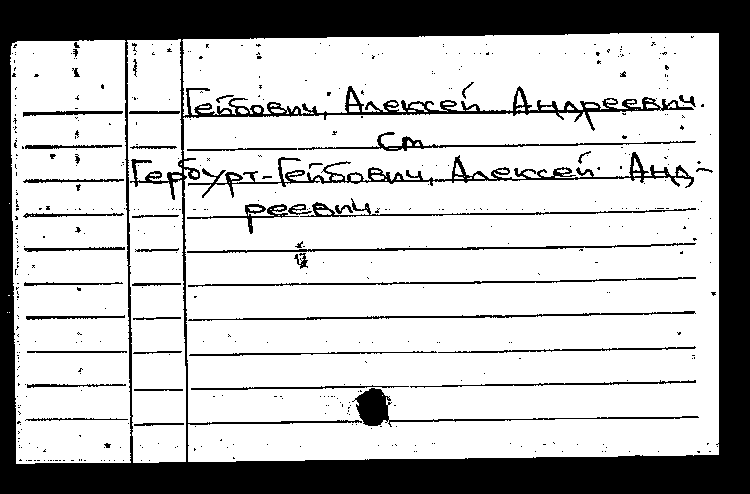 Гейбович, Алексей Андреевич.
см
Гербурт-Гейбович, Алексей Анд-
реевич.